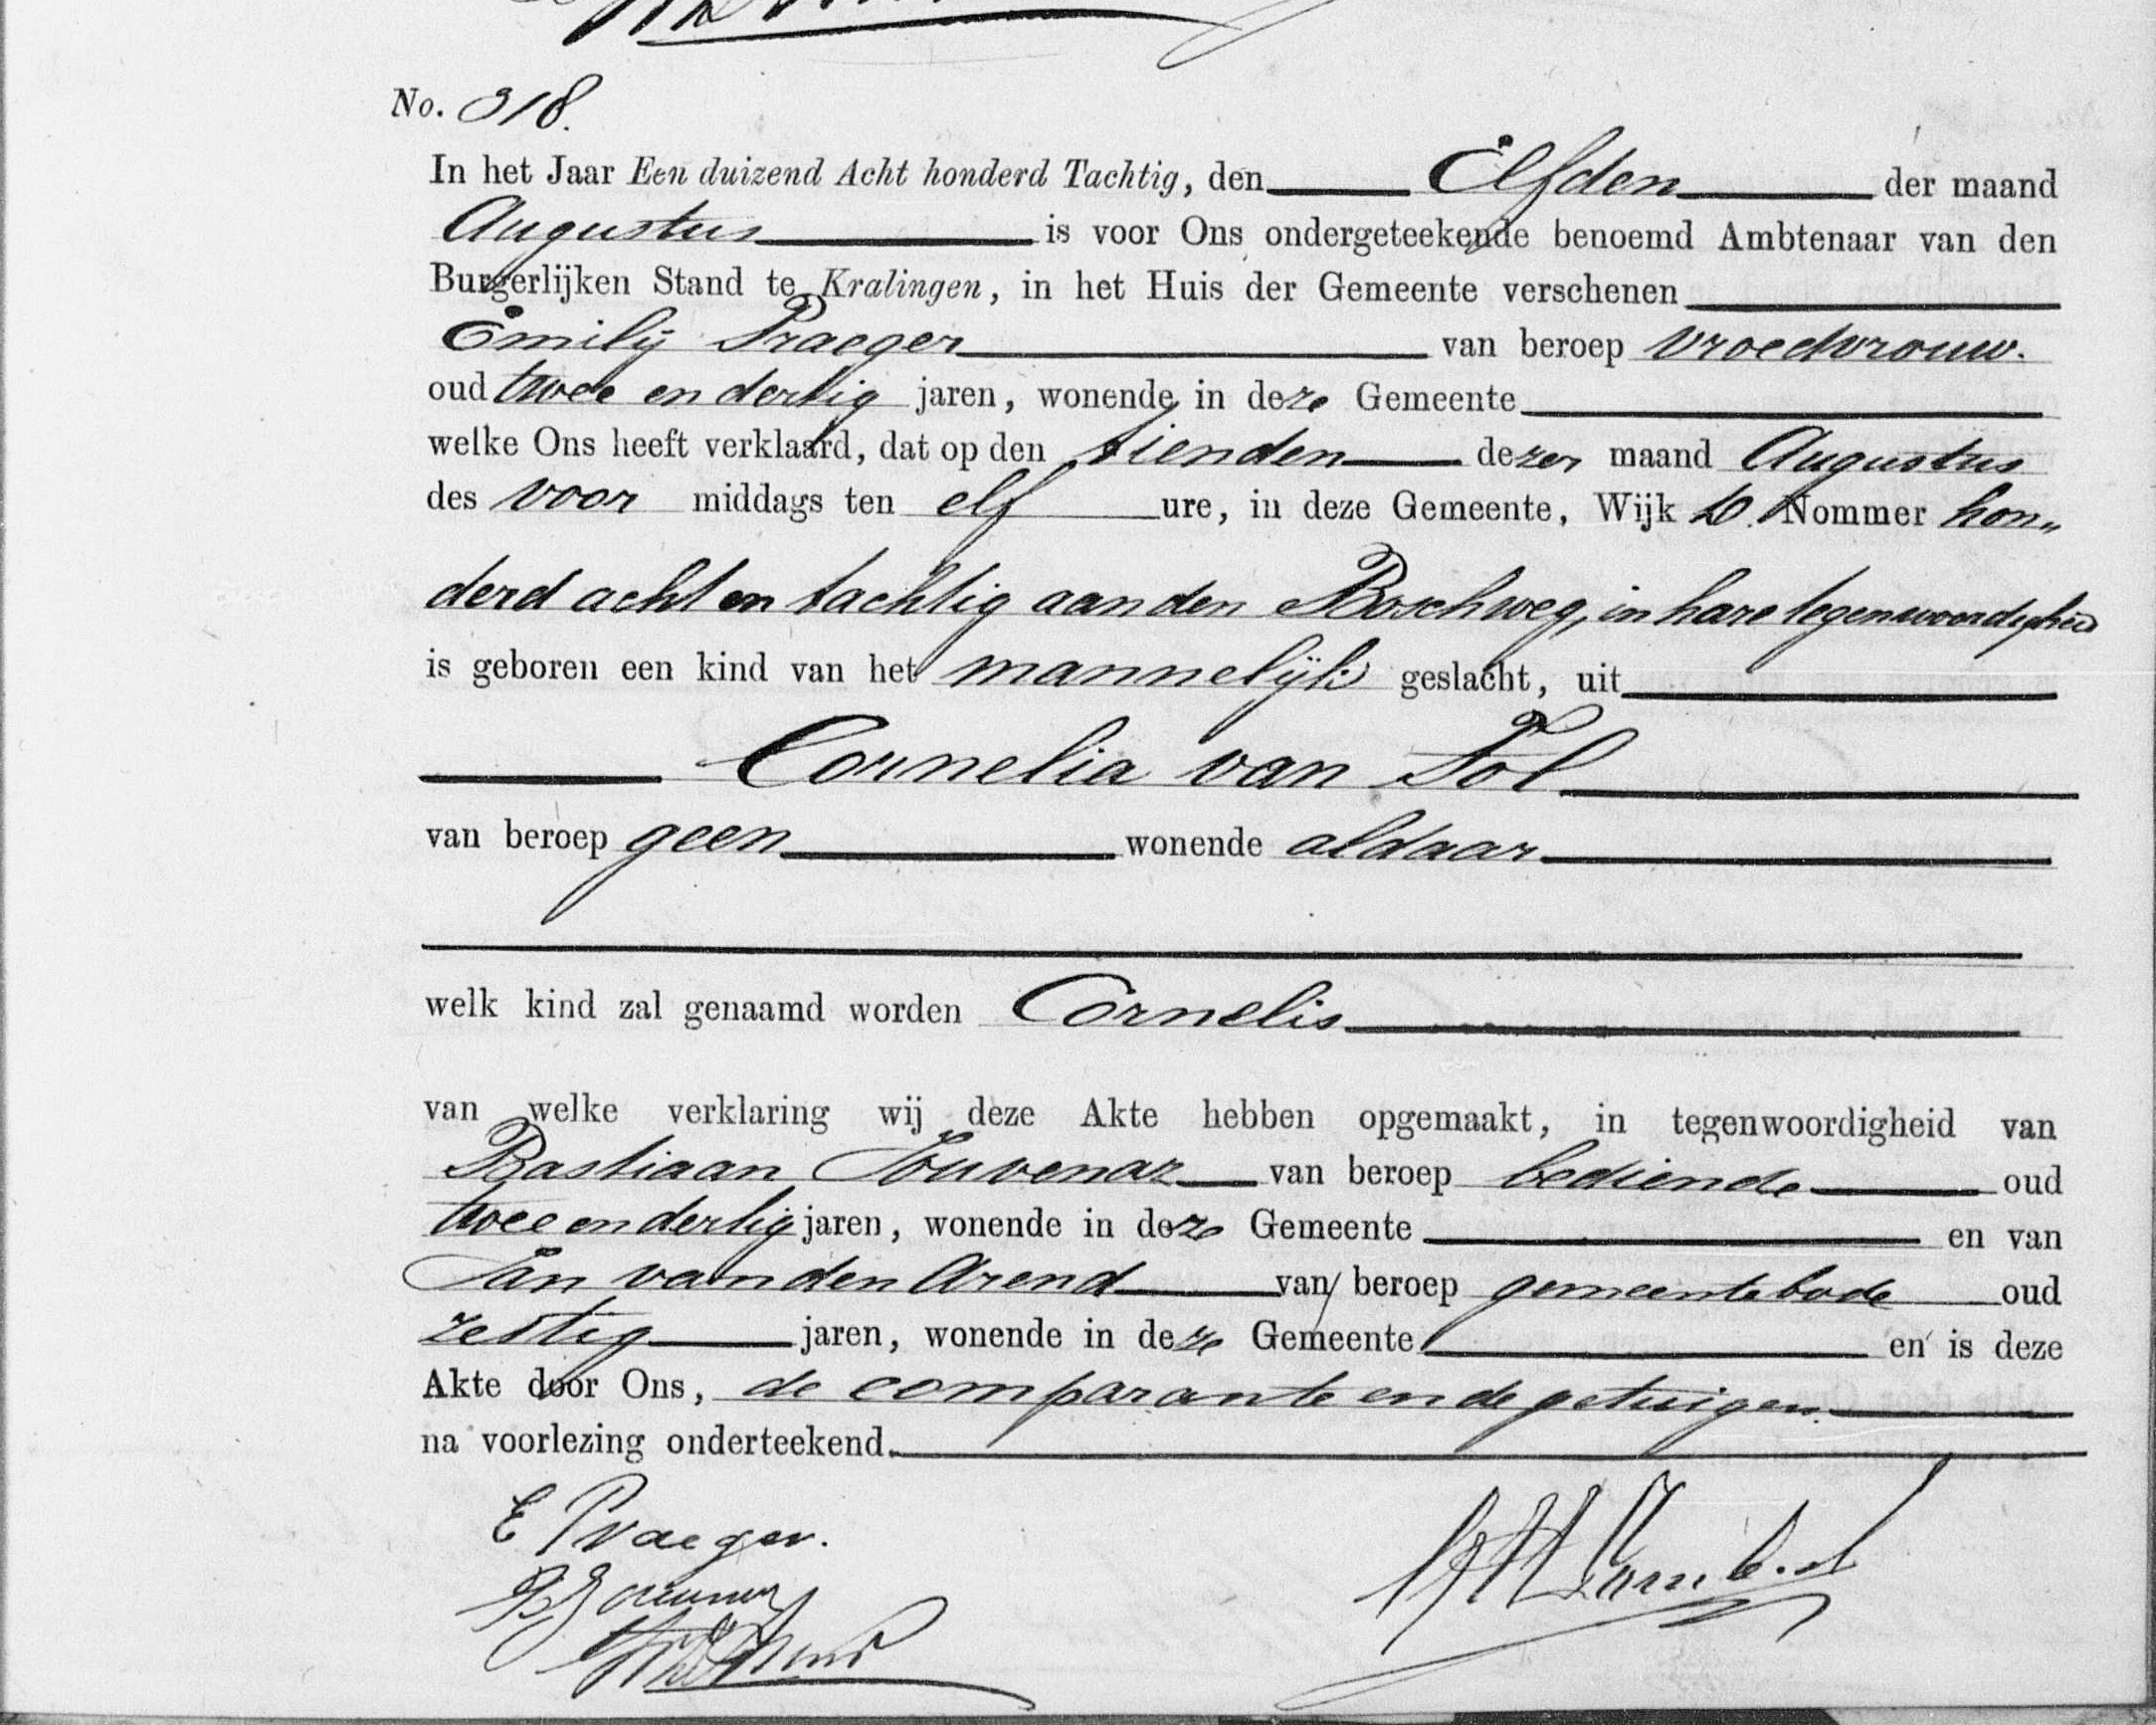 No. 318.
In het Jaar Een duizend Acht honderd Tachtig, den Elfden der maand
Augustus is voor Ons ondergeteekende benoemd Ambtenaar van den
Burgerlijken Stand te Kralingen, in het Huis der Gemeente verschenen
Emilÿ Praeger van beroep vroedvrouw.
oud twee en dertig jaren, wonende in deze Gemeente
welke Ons heeft verklaard, dat op den tienden dezer maand Augustus
des voor middags ten elf ure, in deze Gemeente, Wijk Nommer hon„
derd acht en tachtig aan den Boschweg, in hare tegenwoordigheid
is geboren een kind van het mannelÿk geslacht, uit
Cornelia van Tol
van beroep geen wonende aldaar
welk kind zal genaamd worden Cornelis
van welke verklaring wij deze Akte hebben opgemaakt, in tegenwoordigheid van
Bastiaan Souvenar van beroep bediende oud
twee en dertig jaren, wonende in deze Gemeente en van
Jan van den Arend van beroep gemeentebode oud
zestig jaren, wonende in deze Gemeente en is deze
Akte door Ons, de comparante en de getuigen
na voorlezing onderteekend.
E Praeger.